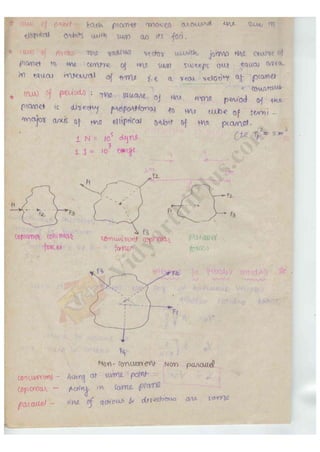 Law of orbit : Each planet moves around the sun in
elliptical orbits with sun as its foci.
Law of Areas The radius vector which joins the centre of
planet to the centre of the sun sweeps out equal area
in equal interval of time i.e areal velocity of planet
constant
Law of periods : The square of the time period of the
planet is directly proportional to the cube of semi-
major axis of the elliptical orbit of the planet.
1 N = 10⁵ dyne
1 J = 10⁷ erge
F2
F3
F2
F3
F3
coplanar
forces
concurrent coplanar
forces
Parallel
forces
F3
F1
Non-concurrent Non parallel
concurrent - Acting at same point
coplanar - Acting in same plane
parallel - line of actions & directions are same
www.VidyarthiPlus.com